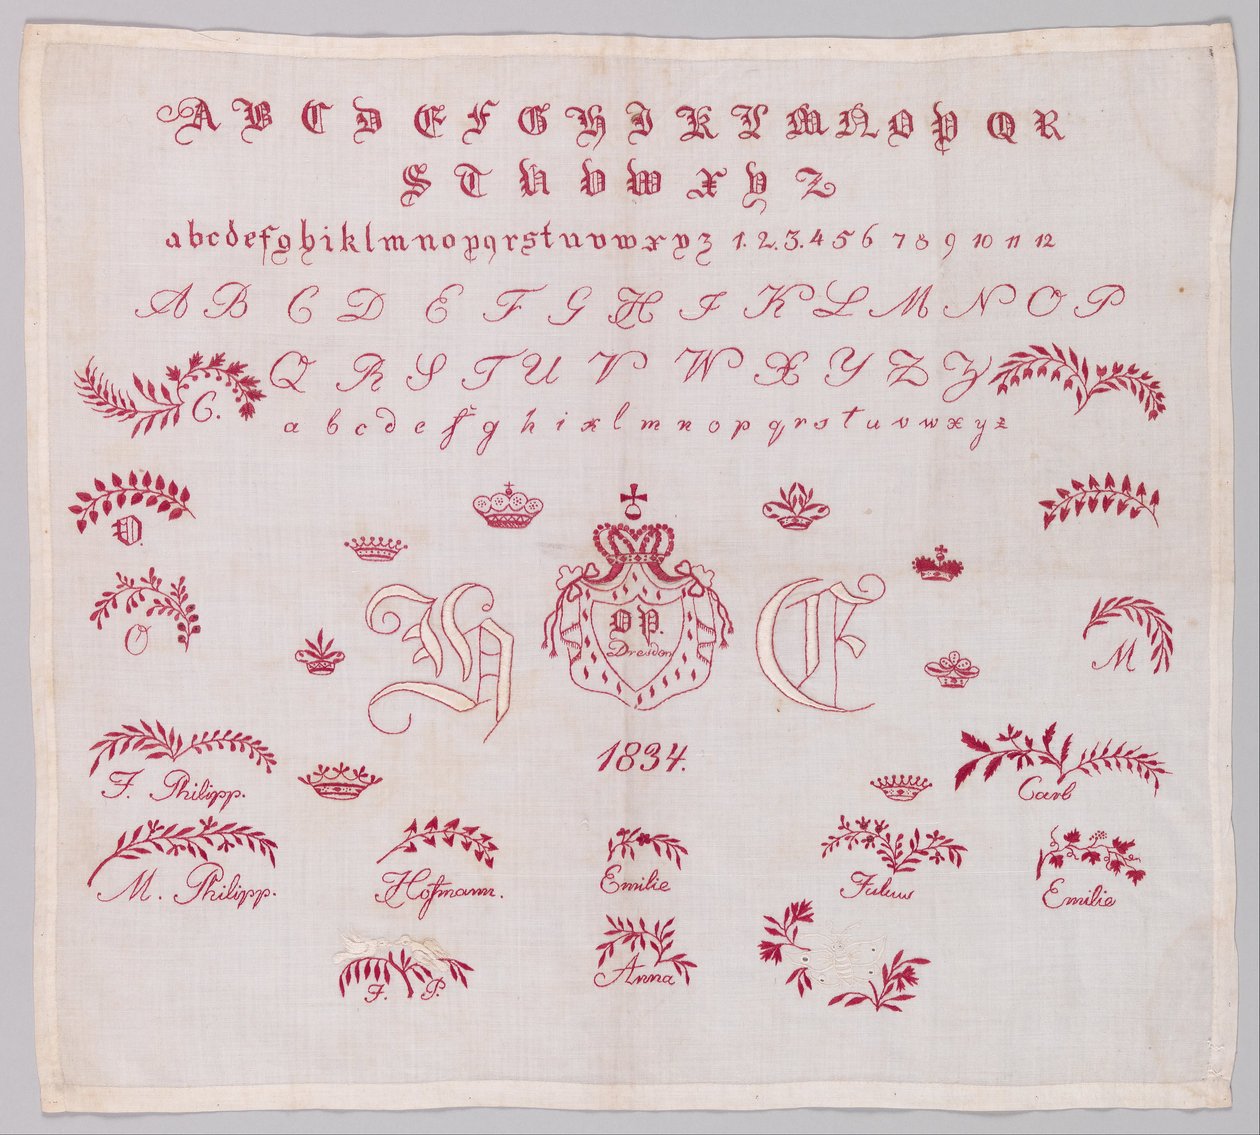 A B C D E F G H I K L M N O P Q R
S T U V W X Y Z
a b c d e f g h i k l m n o p q r s t u v w x y z 1. 2. 3. 4 5 6 7 8 9 10 11 12
A B C D E F G H I K L M N O P
Q R S T U V W X Y Z Z
C.
a b c d e f g h i k l m n o p q r s t u v w x y z
O.
H
O P.
Dresden
E
O
M
1834.
F. Philipp.
Carl
M. Philipp.
Hofmann.
Emilie
Emilie
F. P.
Anna